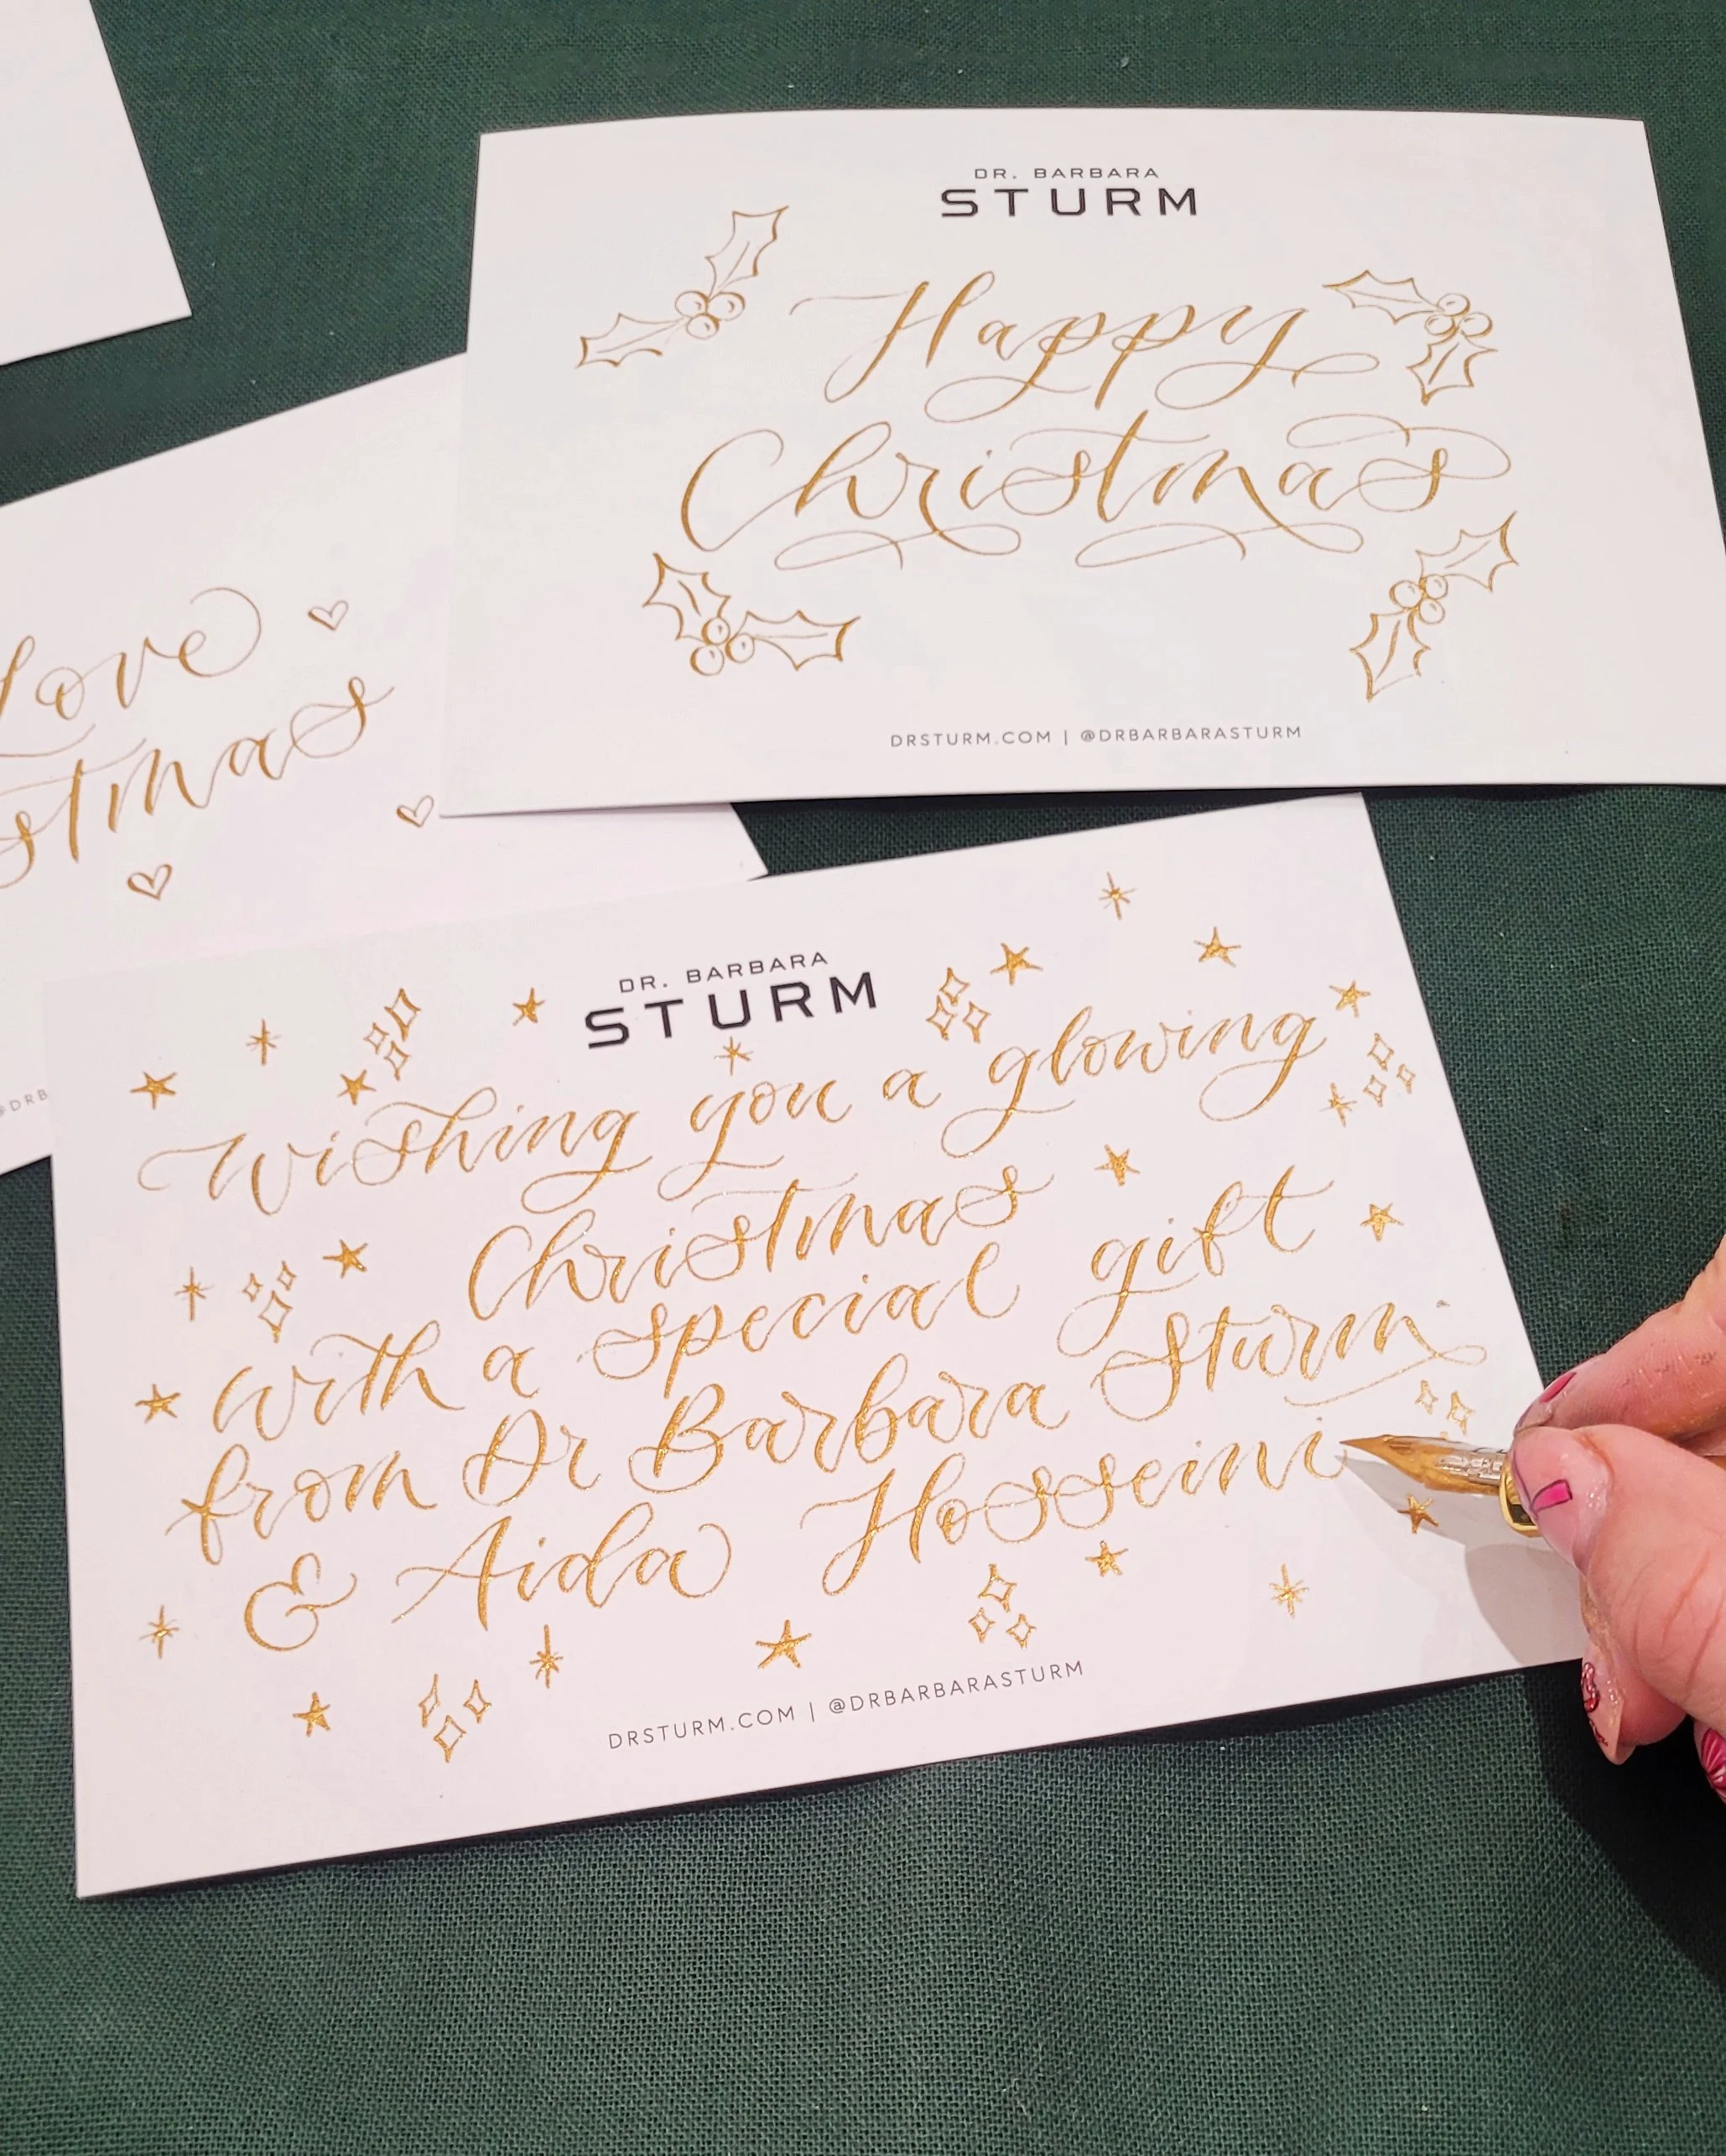 DR. BARBARA
STURM
Happy
Christmas
DRSTURM.COM | @DRBARBARASTURM
Love
stmas
@DRB
DR. BARBARA
STURM
Wishing you a glowing
Christmas
with a special gift
from Dr Barbara Sturm
& Aida Hosseini
DRSTURM.COM | @DRBARBARASTURM